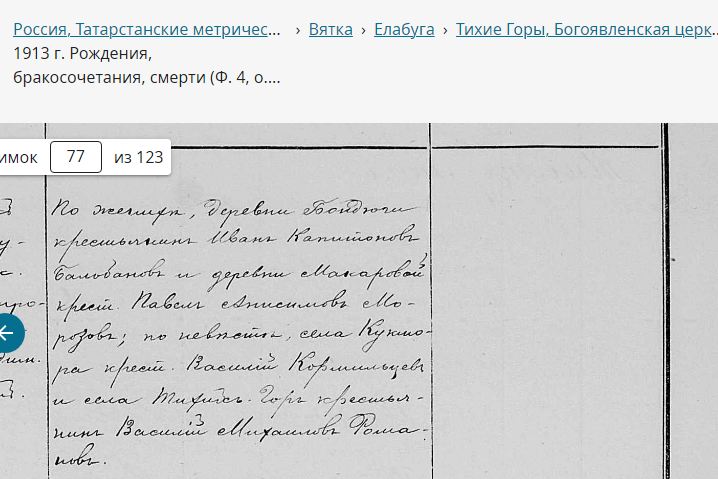 Россия, Татарстанские метричес... › Вятка › Елабуга › Тихие Горы, Богоявленская церк...
1913 г. Рождения,
бракосочетания, смерти (Ф. 4, о....
имок 77 из 123
По женихѣ, деревни Бондюги
крестьянинъ Иванъ Капитоновъ
Балобановъ и деревни Макаровой
крест. Павелъ Анисимовъ Мо-
розовъ; по невѣстѣ, села Кукмо-
ра крест. Василій Кормильцевъ
и села Тихихъ Горъ крестья-
нинъ Василій Михаиловъ Рома-
новъ.